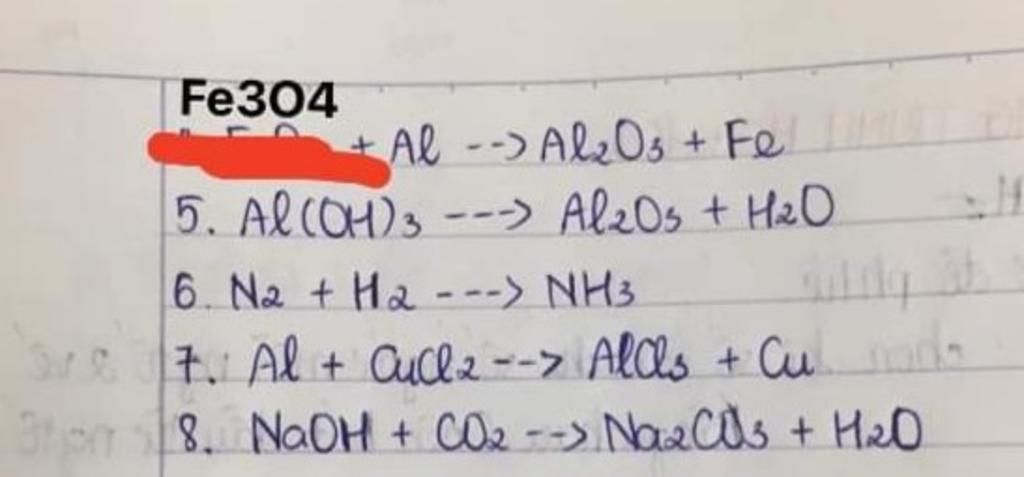 Fe3O4
+ Al --> Al2O3 + Fe
5. Al(OH)3 ---> Al2O3 + H2O
6. N2 + H2 ---> NH3
7. Al + CuCl2 --> AlCl3 + Cu
8. NaOH + CO2 --> Na2CO3 + H2O